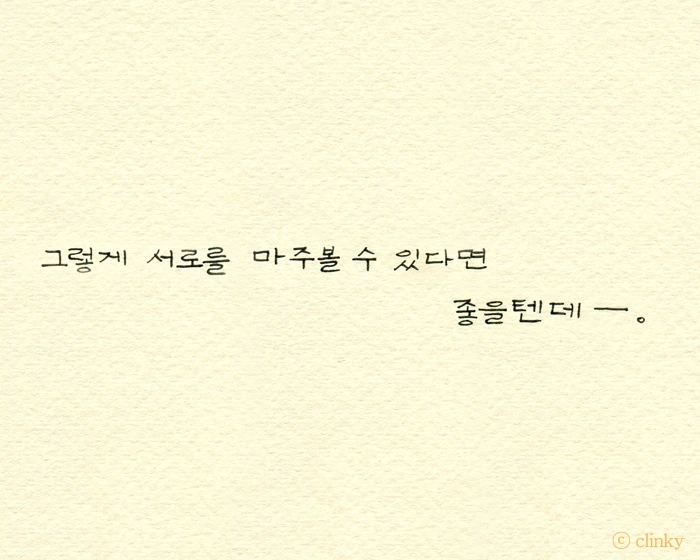 그렇게 서로를 마주볼 수 있다면
좋을텐데 ㅡ。
ⓒ clinky